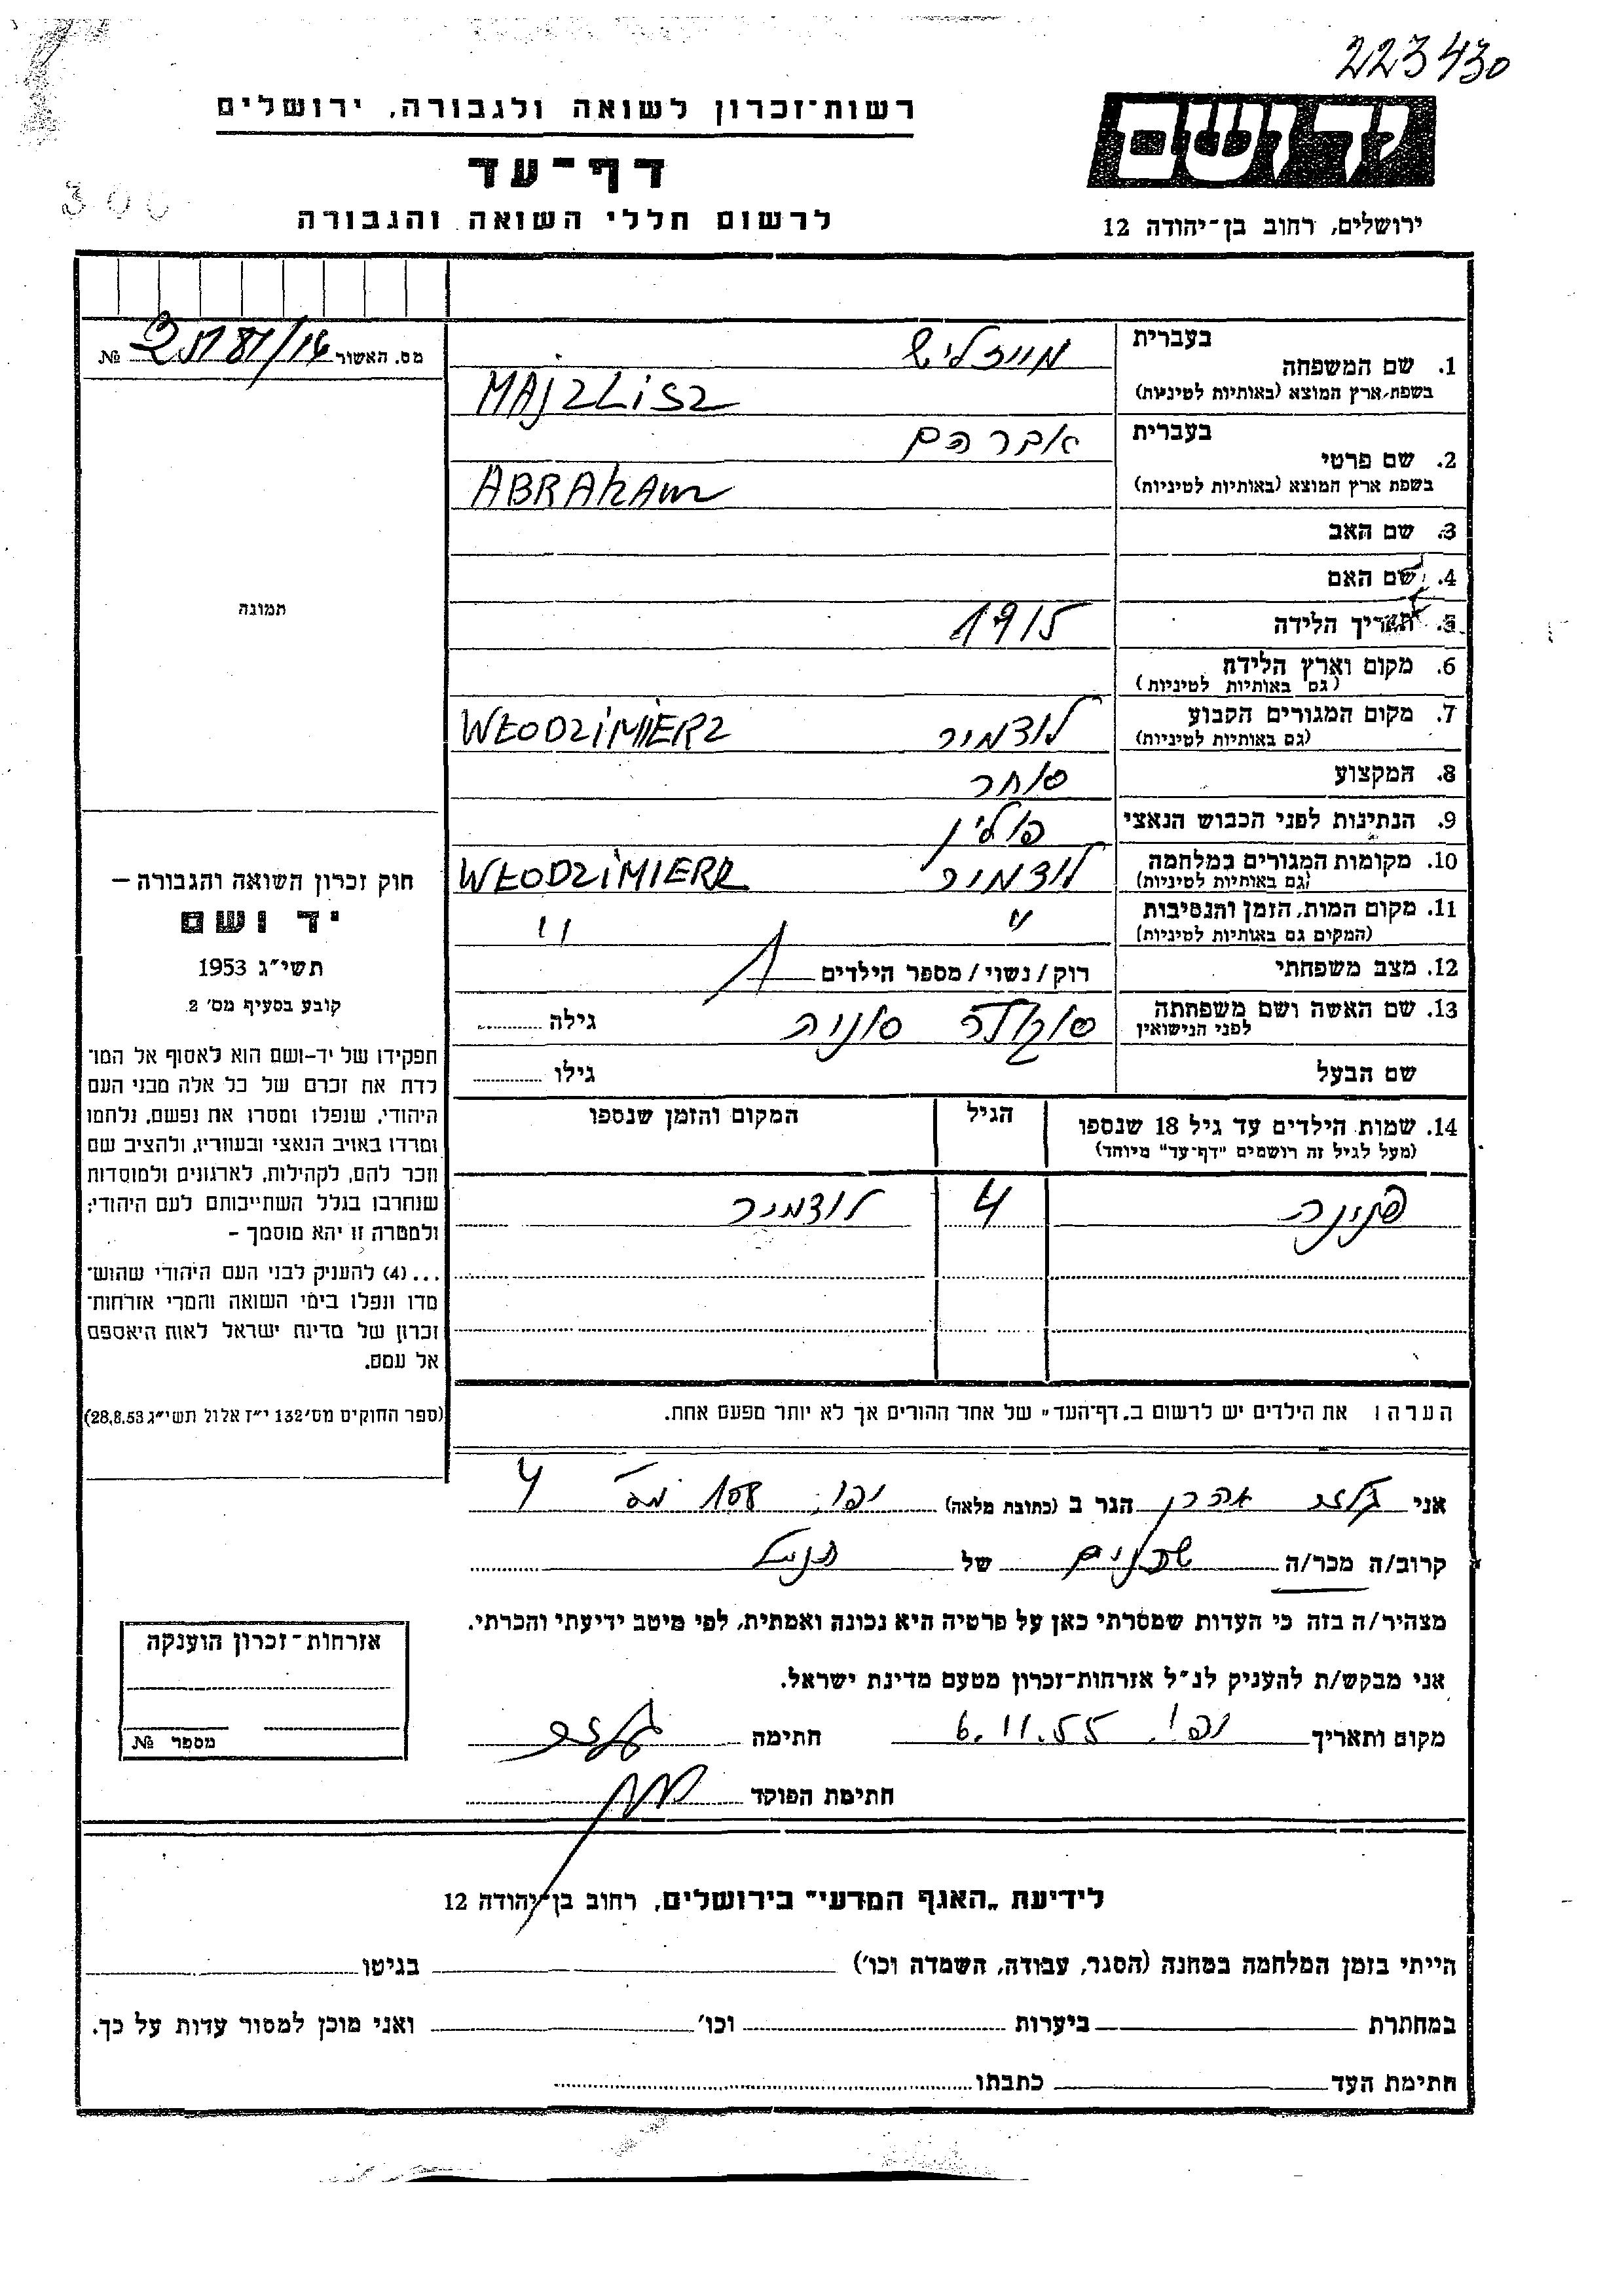 223430
רשות־זכרון לשואה ולגבורה, ירושלים
ידושם
דף־עד
300
לרשום חללי השואה והגבורה
ירושלים, רחוב בן־יהודה 12
1. שם המשפחה
בעברית
מייזליש
בשפת־ארץ המוצא (באותיות לטיניות)
MAJZLISZ
מס. האשור №
2. שם פרטי
בעברית
אברהם
בשפת ארץ המוצא (באותיות לטיניות)
ABRAHAM
3. שם האב
4. שם האם
תמונה
5. תאריך הלידה 1915
6. מקום וארץ הלידה
(גם באותיות לטיניות)
7. מקום המגורים הקבוע לודמיר WŁODZIMIERZ
(גם באותיות לטיניות)
8. המקצוע סוחר
9. הנתינות לפני הכבוש הנאצי פולין
10. מקומות המגורים במלחמה לודמיר WŁODZIMIERZ
(גם באותיות לטיניות)
11. מקום המות, הזמן והנסיבות " "
(המקום גם באותיות לטיניות)
12. מצב משפחתי רוק/נשוי/מספר הילדים 1
13. שם האשה ושם משפחתה סוניה גילה
לפני הנישואין
שם הבעל גילו
14. שמות הילדים עד גיל 18 שנספו הגיל המקום והזמן שנספו
(מעל לגיל זה רושמים "דף־עד" מיוחד)
פנינה 4 לודמיר
הערה: את הילדים יש לרשום ב„דף־העד" של אחד ההורים אך לא יותר מפעם אחת.
חוק זכרון השואה והגבורה –
יד ושם
תשי"ג 1953
קובע בסעיף מס' 2
תפקידו של יד–ושם הוא לאסוף אל המו־
לדת את זכרם של כל אלה מבני העם
היהודי, שנפלו ומסרו את נפשם, נלחמו
ומרדו באויב הנאצי ובעוזריו, ולהציב שם
וזכר להם, לקהילות, לארגונים ולמוסדות
שנחרבו בגלל השתייכותם לעם היהודי;
ולמטרה זו יהא מוסמך –
...(4) להעניק לבני העם היהודי שהוש־
מדו ונפלו בימי השואה והמרי אזרחות־
זכרון של מדינת ישראל לאות היאספם
אל עמם.
(ספר החוקים מס' 132 י"ז אלול תשי"ג 28.8.53)
אני אהרן הגר ב (כתובת מלאה) יפו, 108 4
קרוב/ה מכר/ה שכנים של
מצהיר/ה בזה כי העדות שמסרתי כאן על פרטיה היא נכונה ואמתית, לפי מיטב ידיעתי והכרתי.
אני מבקש/ת להעניק לנ"ל אזרחות־זכרון מטעם מדינת ישראל.
מקום ותאריך יפו, 6.11.55 חתימה
חתימת הפוקד
אזרחות־זכרון הוענקה
מספר №
לידיעת „האגף המדעי" בירושלים, רחוב בן־יהודה 12
הייתי בזמן המלחמה במחנה (הסגר, עבודה, השמדה וכו') בגיטו
במחתרת ביערות וכו' ואני מוכן למסור עדות על כך.
חתימת העד כתבתו